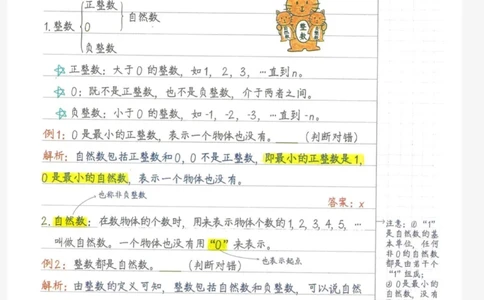 正整数
自然数
1.整数 0
负整数
正整数：大于0的整数，如1，2，3，…直到n。
0：既不是正整数，也不是负整数，介于两者之间。
负整数：小于0的整数，如-1，-2，-3，…直到-n。
例1：0是最小的正整数，表示一个物体也没有。____（判断对错）
解析：自然数包括正整数和0，0不是正整数，即最小的正整数是1，
0是最小的自然数，表示一个物体也没有。
也称非负整数
答案：x
2.自然数：在数物体的个数时，用来表示物体个数的1，2，3，4，5，…
叫做自然数。一个物体也没有用“0”来表示。
也表示起点
例2：整数都是自然数。____（判断对错）
解析：由整数的定义可知，整数包括自然数和负整数，可以说自然
注意：①“1”
是自然数的基
本单位，任何
非0的自然数
都是由若干个
“1”组成；
②0是最小的
自然数，没有
整数